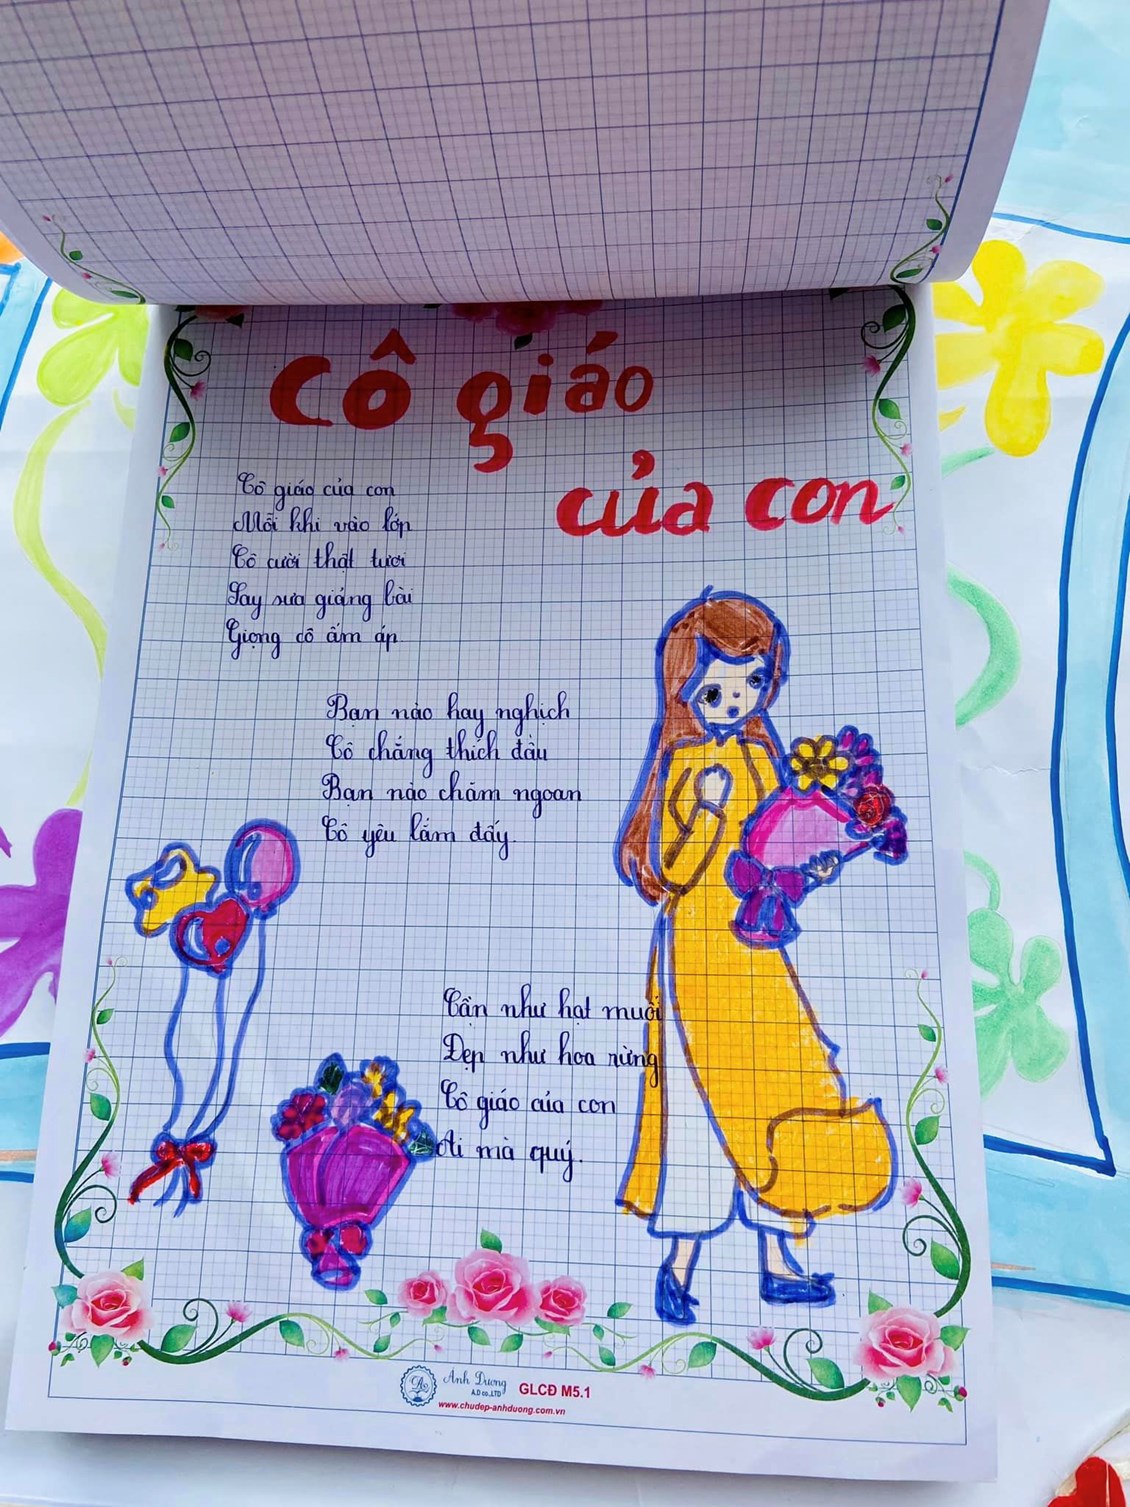 Cô giáo
của con
Cô giáo của con
Mỗi khi vào lớp
Cô cười thật tươi
Say sưa giảng bài
Giọng cô ấm áp
Bạn nào hay nghịch
Cô chẳng thích đâu
Bạn nào chăm ngoan
Cô yêu lắm đấy.
Cần như hạt muối
Đẹp như hoa rừng
Cô giáo của con
Ai mà quý.
Anh Dương
A.D co.,LTD
GLCĐ M5.1
www.chudep-anhduong.com.vn